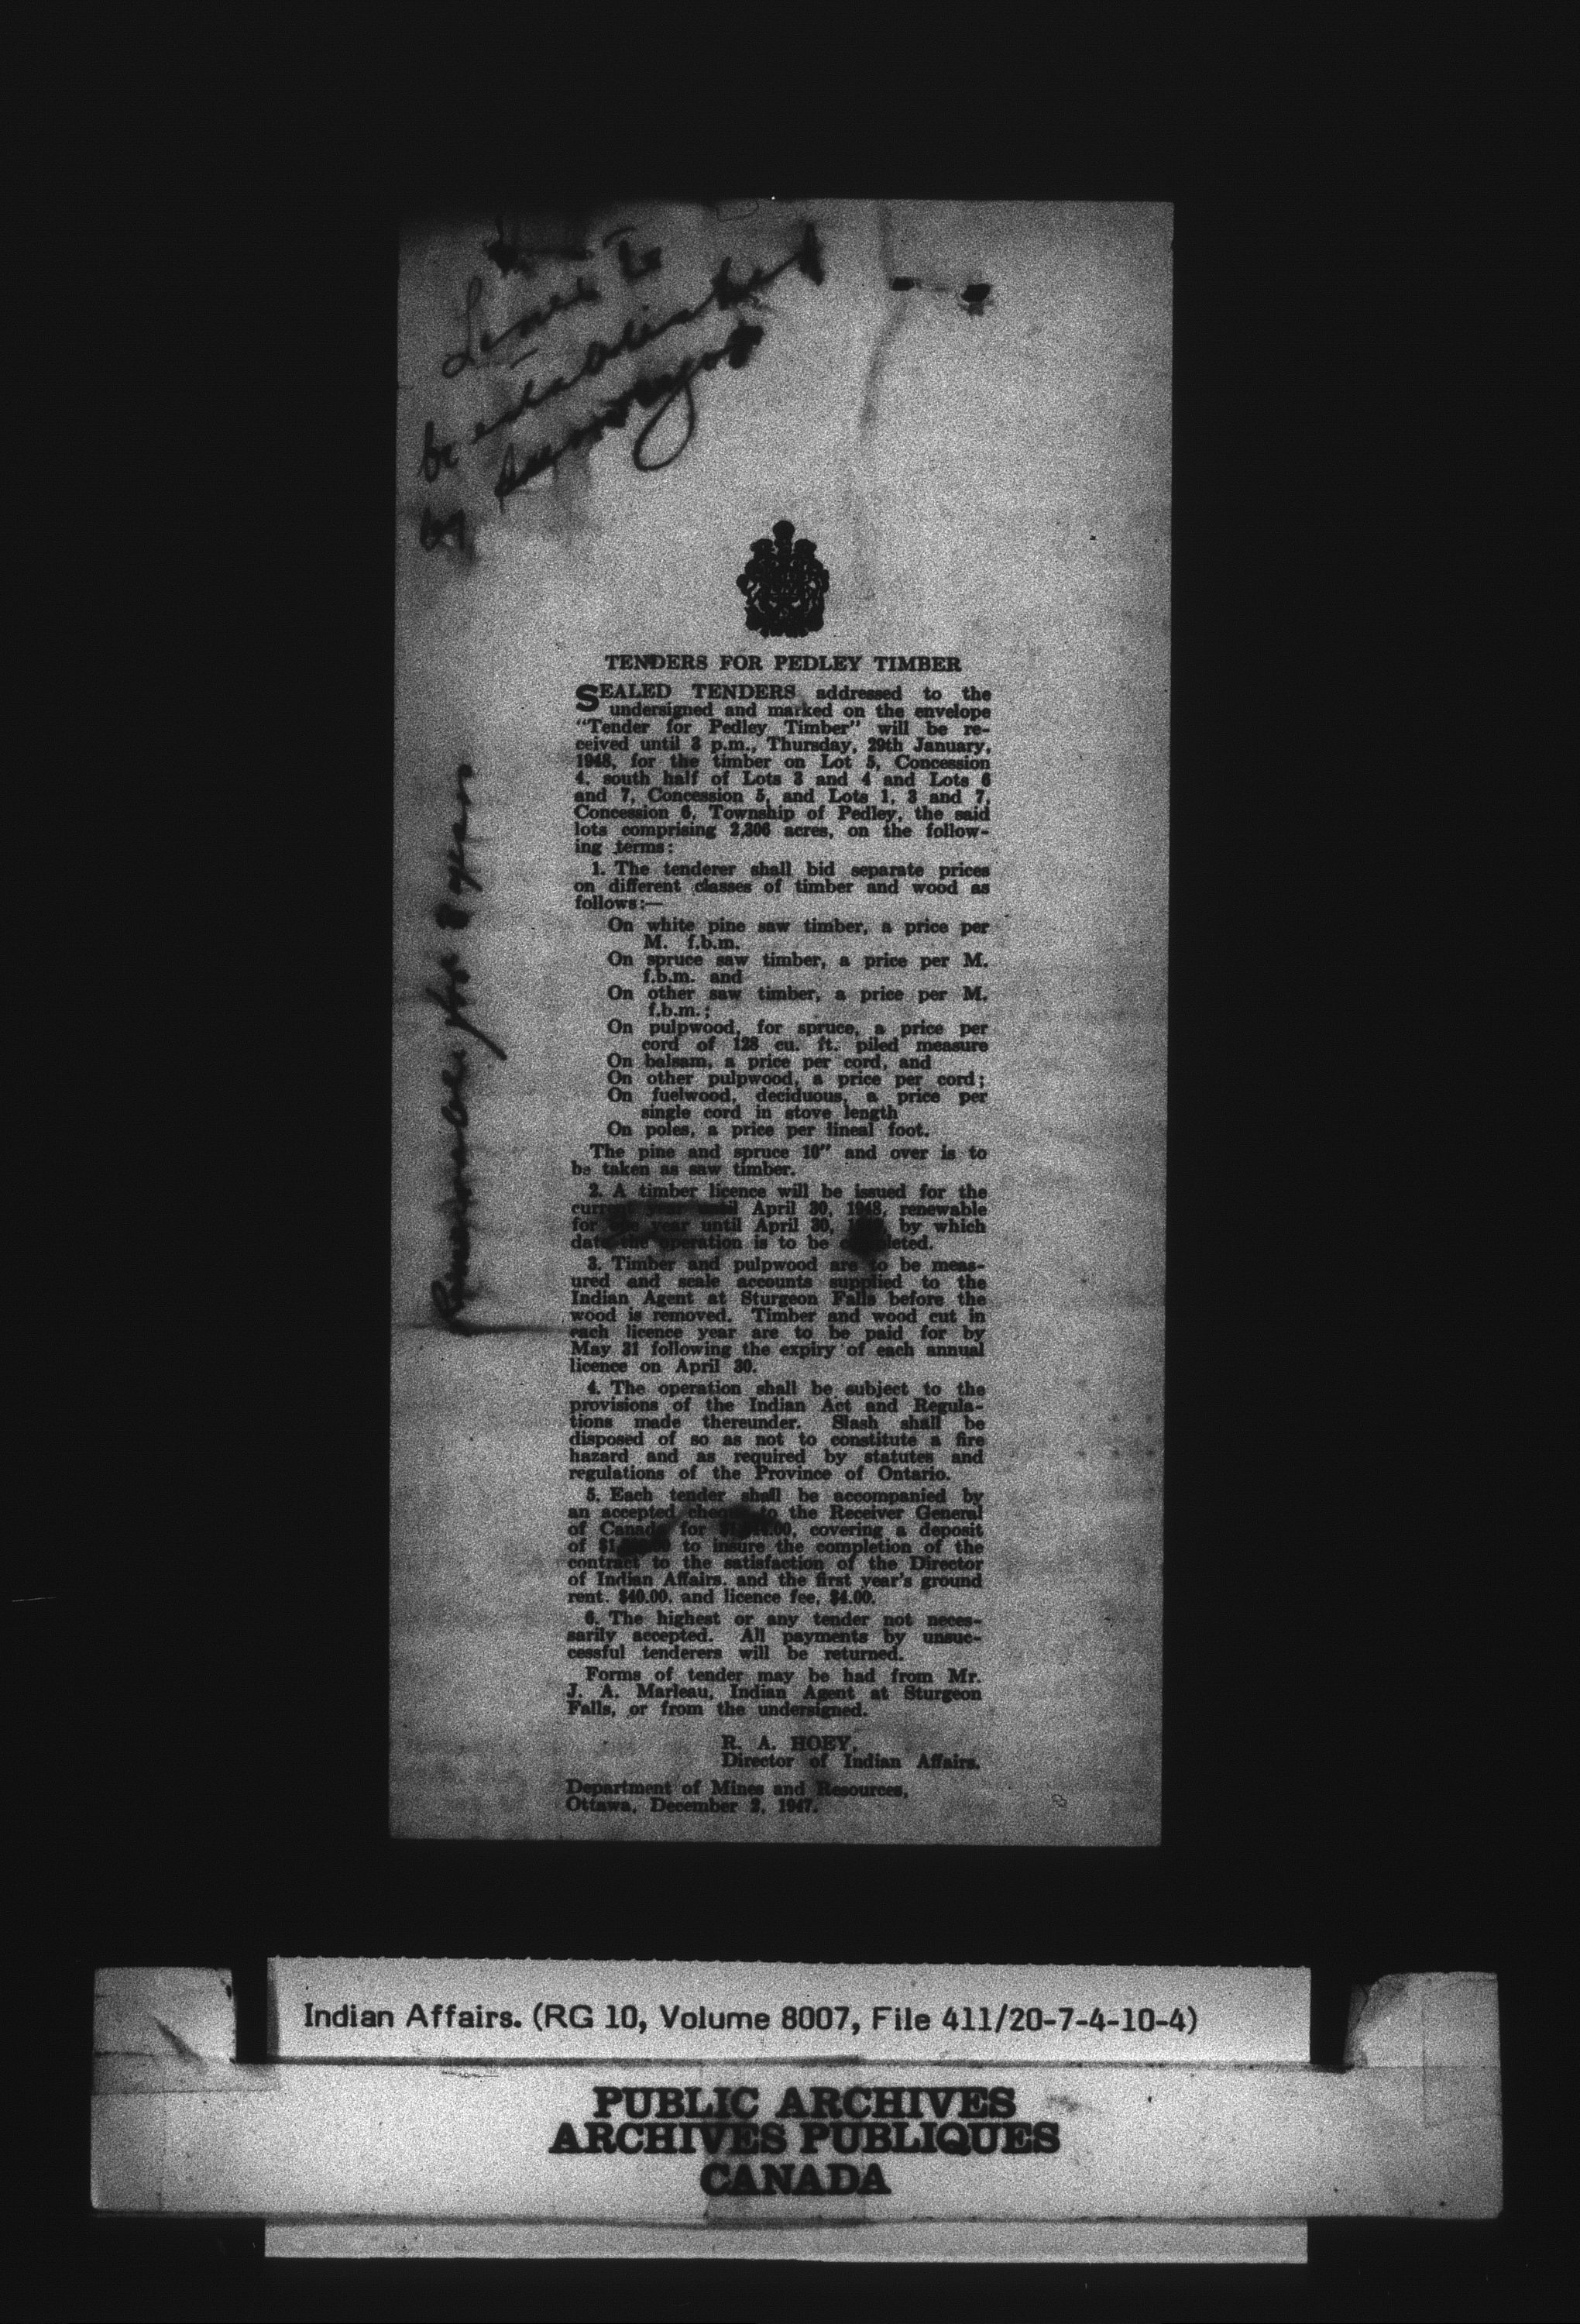 Lines to
be established
by surveyor
Renewable for 2 years
TENDERS FOR PEDLEY TIMBER
SEALED TENDERS addressed to the
undersigned and marked on the envelope
"Tender for Pedley Timber" will be re-
ceived until 3 p.m., Thursday, 29th January,
1948, for the timber on Lot 5, Concession
4, south half of Lots 3 and 4 and Lots 6
and 7, Concession 5, and Lots 1, 3 and 7,
Concession 6, Township of Pedley, the said
lots comprising 2,306 acres, on the follow-
ing terms:
1. The tenderer shall bid separate prices
on different classes of timber and wood as
follows:—
On white pine saw timber, a price per
M. f.b.m.
On spruce saw timber, a price per M.
f.b.m. and
On other saw timber, a price per M.
f.b.m.;
On pulpwood, for spruce, a price per
cord of 128 cu. ft. piled measure
On balsam, a price per cord, and
On other pulpwood, a price per cord;
On fuelwood, deciduous, a price per
single cord in stove length
On poles, a price per lineal foot.
The pine and spruce 10" and over is to
be taken as saw timber.
2. A timber licence will be issued for the
current year until April 30, 1948, renewable
for one year until April 30, by which
date the operation is to be completed.
3. Timber and pulpwood are to be meas-
ured and scale accounts supplied to the
Indian Agent at Sturgeon Falls before the
wood is removed. Timber and wood cut in
each licence year are to be paid for by
May 31 following the expiry of each annual
licence on April 30.
4. The operation shall be subject to the
provisions of the Indian Act and Regula-
tions made thereunder. Slash shall be
disposed of so as not to constitute a fire
hazard and as required by statutes and
regulations of the Province of Ontario.
5. Each tender shall be accompanied by
an accepted cheque to the Receiver General
of Canada for covering a deposit
of to insure the completion of the
contract to the satisfaction of the Director
of Indian Affairs, and the first year's ground
rent, $40.00, and licence fee, $4.00.
6. The highest or any tender not neces-
sarily accepted. All payments by unsuc-
cessful tenderers will be returned.
Forms of tender may be had from Mr.
J. A. Marleau, Indian Agent at Sturgeon
Falls, or from the undersigned.
R. A. HOEY,
Director of Indian Affairs.
Department of Mines and Resources,
Ottawa, December 2, 1947.
Indian Affairs. (RG 10, Volume 8007, File 411/20-7-4-10-4)
PUBLIC ARCHIVES
ARCHIVES PUBLIQUES
CANADA